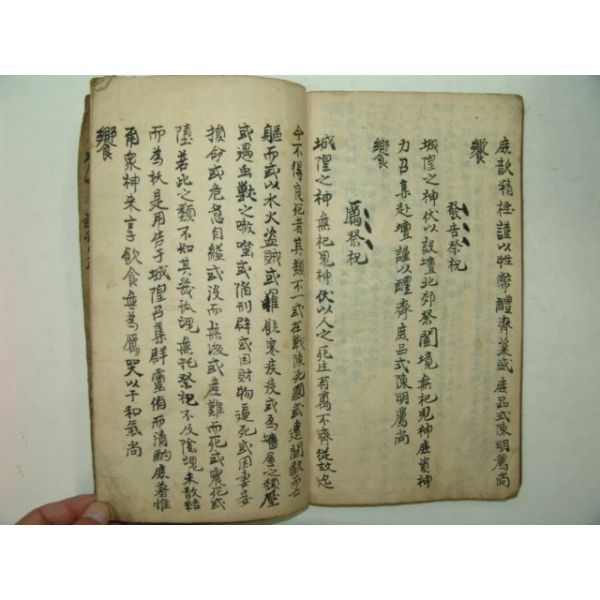 庶歆精禋謹以牲幣醴齊粢盛庶品式陳明薦尚
饗
發告祭祝
城隍之神伏以設壇北郊祭闔境無祀鬼神庶資神
力召集赴壇謹以醴齊庶品式陳明薦尚
饗
厲祭祝
城隍之神無祀鬼神伏以人之死生有萬不齊從古迄
今不得良死者其類不一或在戰陳死國或遭鬪歐而亡
軀而或以水火盜賊或罹飢寒疾疫或爲墻屋之頹壓
或遇虫獸之螫噬或陷刑辟或因財物逼死或因妻妾
損命或危急自縊或沒而無後或產難而死或震死或
墮若此之類不知其幾孤魂無托祭祀不及陰魂未散結
而為妖是用告于城隍召集群靈侑而清酌庶羞惟
甫衆神來享飮食無為厲哭以干和氣尚
饗